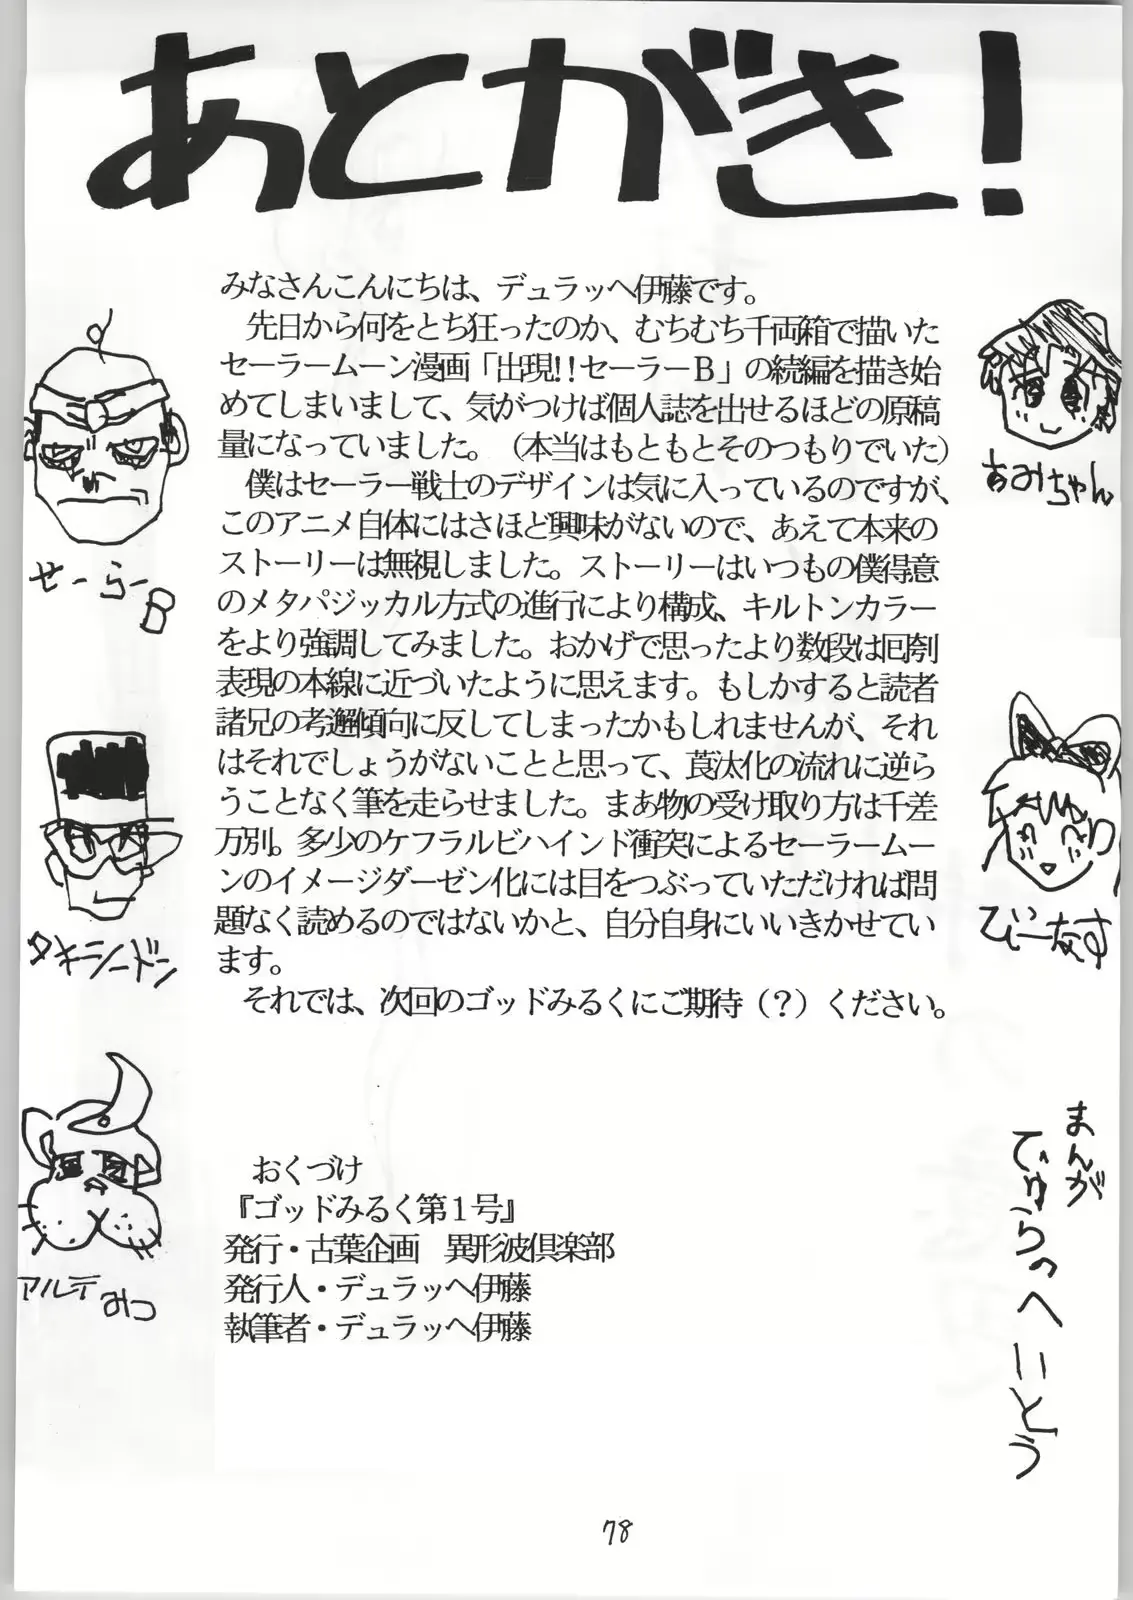 あとがき!
みなさんこんにちは、デュラッヘ伊藤です。
先日から何をとち狂ったのか、むちむち千両箱で描いた
セーラームーン漫画「出現!!セーラーB」の続編を描き始
めてしまいまして、気がつけば個人誌を出せるほどの原稿
量になっていました。（本当はもともとそのつもりでいた）
僕はセーラー戦士のデザインは気に入っているのですが、
このアニメ自体にはさほど興味がないので、あえて本来の
ストーリーは無視しました。ストーリーはいつもの僕得意
のメタパジッカル方式の進行により構成、キルトンカラー
をより強調してみました。おかげで思ったより数段は厄刳
表現の本線に近づいたように思えます。もしかすると読者
諸兄の考邂傾向に反してしまったかもしれませんが、それ
はそれでしょうがないことと思って、汰化の流れに逆ら
うことなく筆を走らせました。まあ物の受け取り方は千差
万別。多少のケフラルビハインド衝突によるセーラームー
ンのイメージダーゼン化には目をつぶっていただければ問
題なく読めるのではないかと、自分自身にいいきかせてい
ます。
それでは、次回のゴッドみるくにご期待（？）ください。
せーらーB
タキシードン
アルテみつ
あみちゃん
びーなす
まんが
でゅらっへいとう
おくづけ
『ゴッドみるく第１号』
発行・古葉企画　異形波倶楽部
発行人・デュラッヘ伊藤
執筆者・デュラッヘ伊藤
78